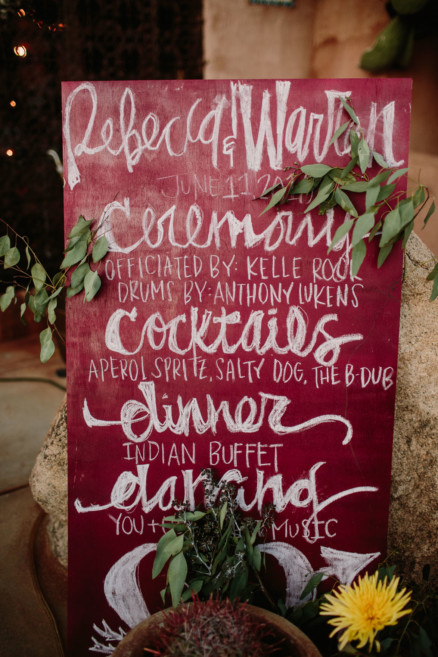 Rebecca & Warren
JUNE 11 20
Ceremony
OFFICIATED BY: KELLE ROCK
DRUMS BY: ANTHONY LUKENS
Cocktails
APEROL SPRITZ, SALTY DOG, THE B-DUB
dinner
INDIAN BUFFET
dancing
YOU + MUSIC